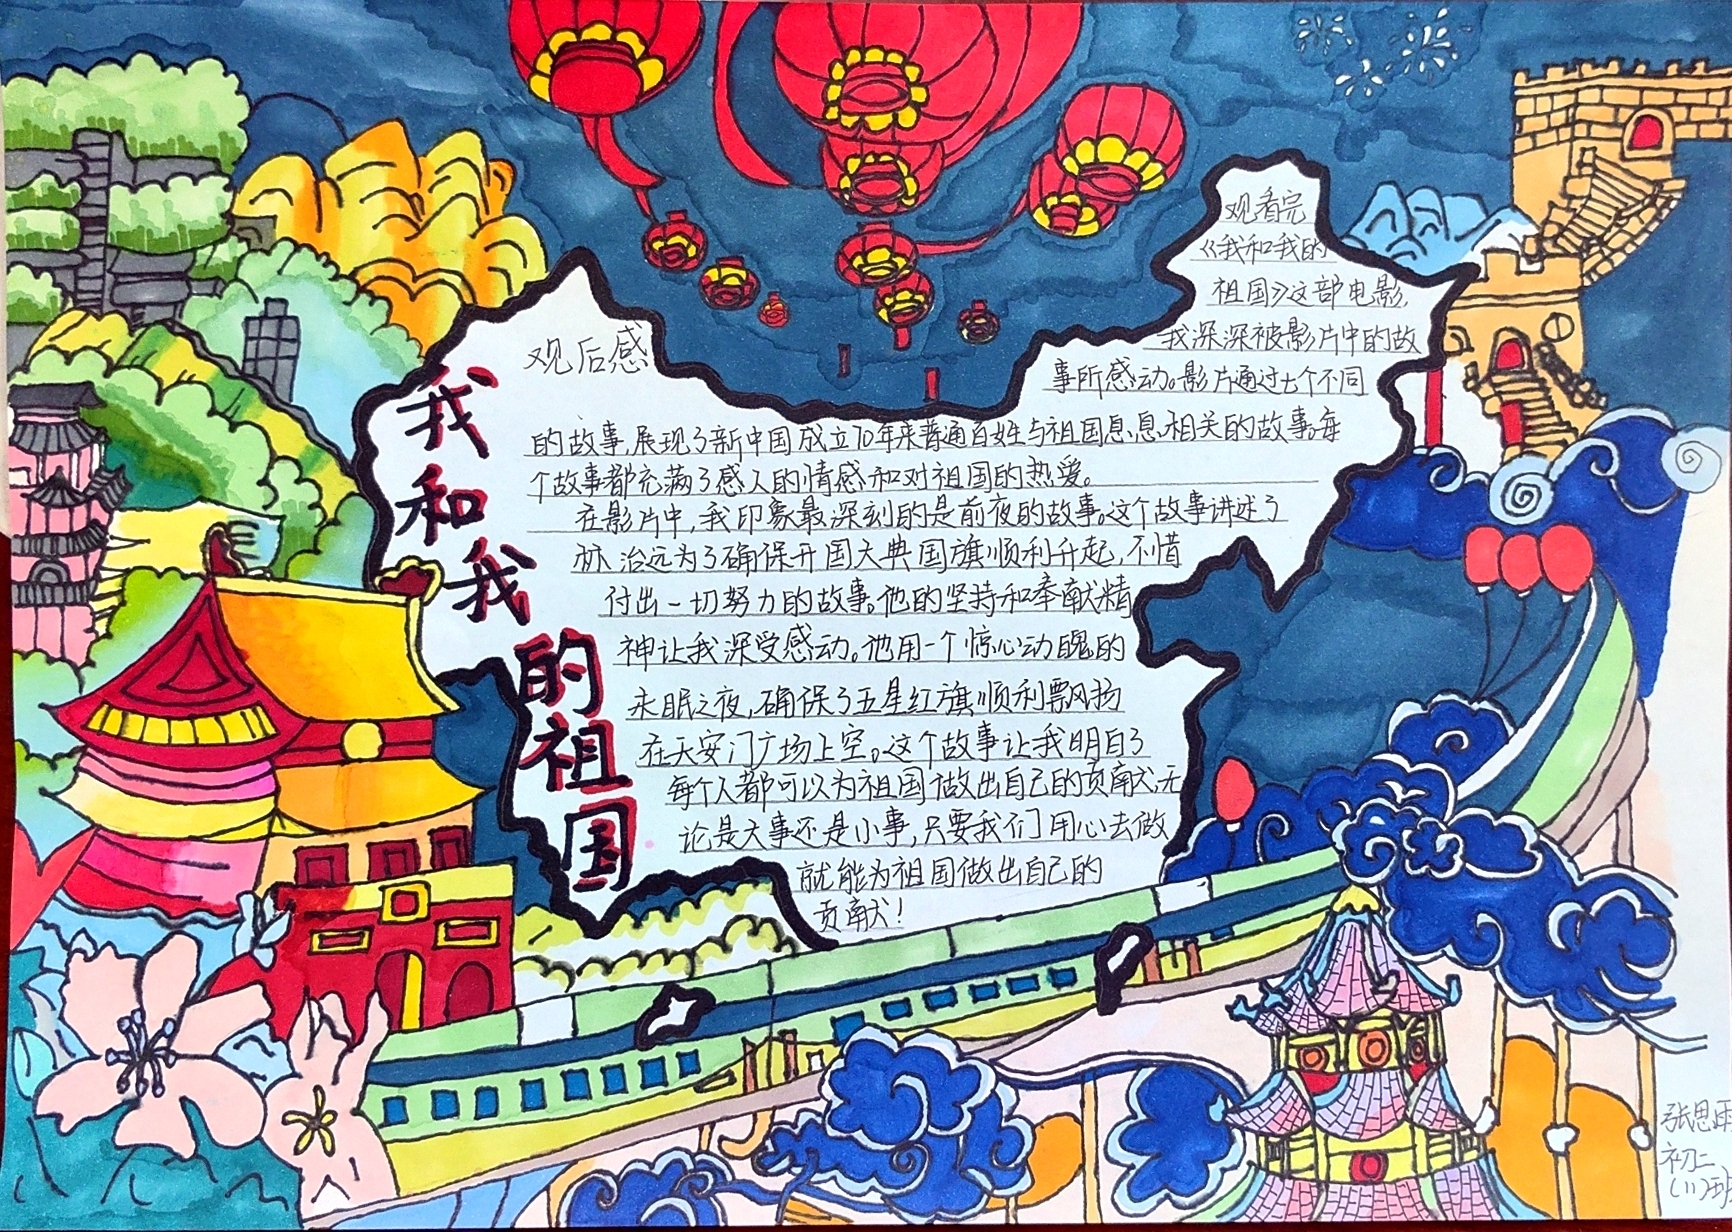 我和我的祖国
观后感
观看完
《我和我的
祖国》这部电影,
我深深被影片中的故
事所感动。影片通过七个不同
的故事,展现了新中国成立70年来普通百姓与祖国息息相关的故事。每
个故事都充满了感人的情感和对祖国的热爱。
在影片中,我印象最深刻的是前夜的故事。这个故事讲述了
林治远为了确保开国大典国旗顺利升起,不惜
付出一切努力的故事。他的坚持和奉献精
神让我深受感动。他用一个惊心动魄的
未眠之夜,确保了五星红旗顺利飘扬
在天安门广场上空。这个故事让我明白了
每个人都可以为祖国做出自己的贡献,无
论是大事还是小事,只要我们用心去做
就能为祖国做出自己的
贡献!
张思雨
初二
(11)班